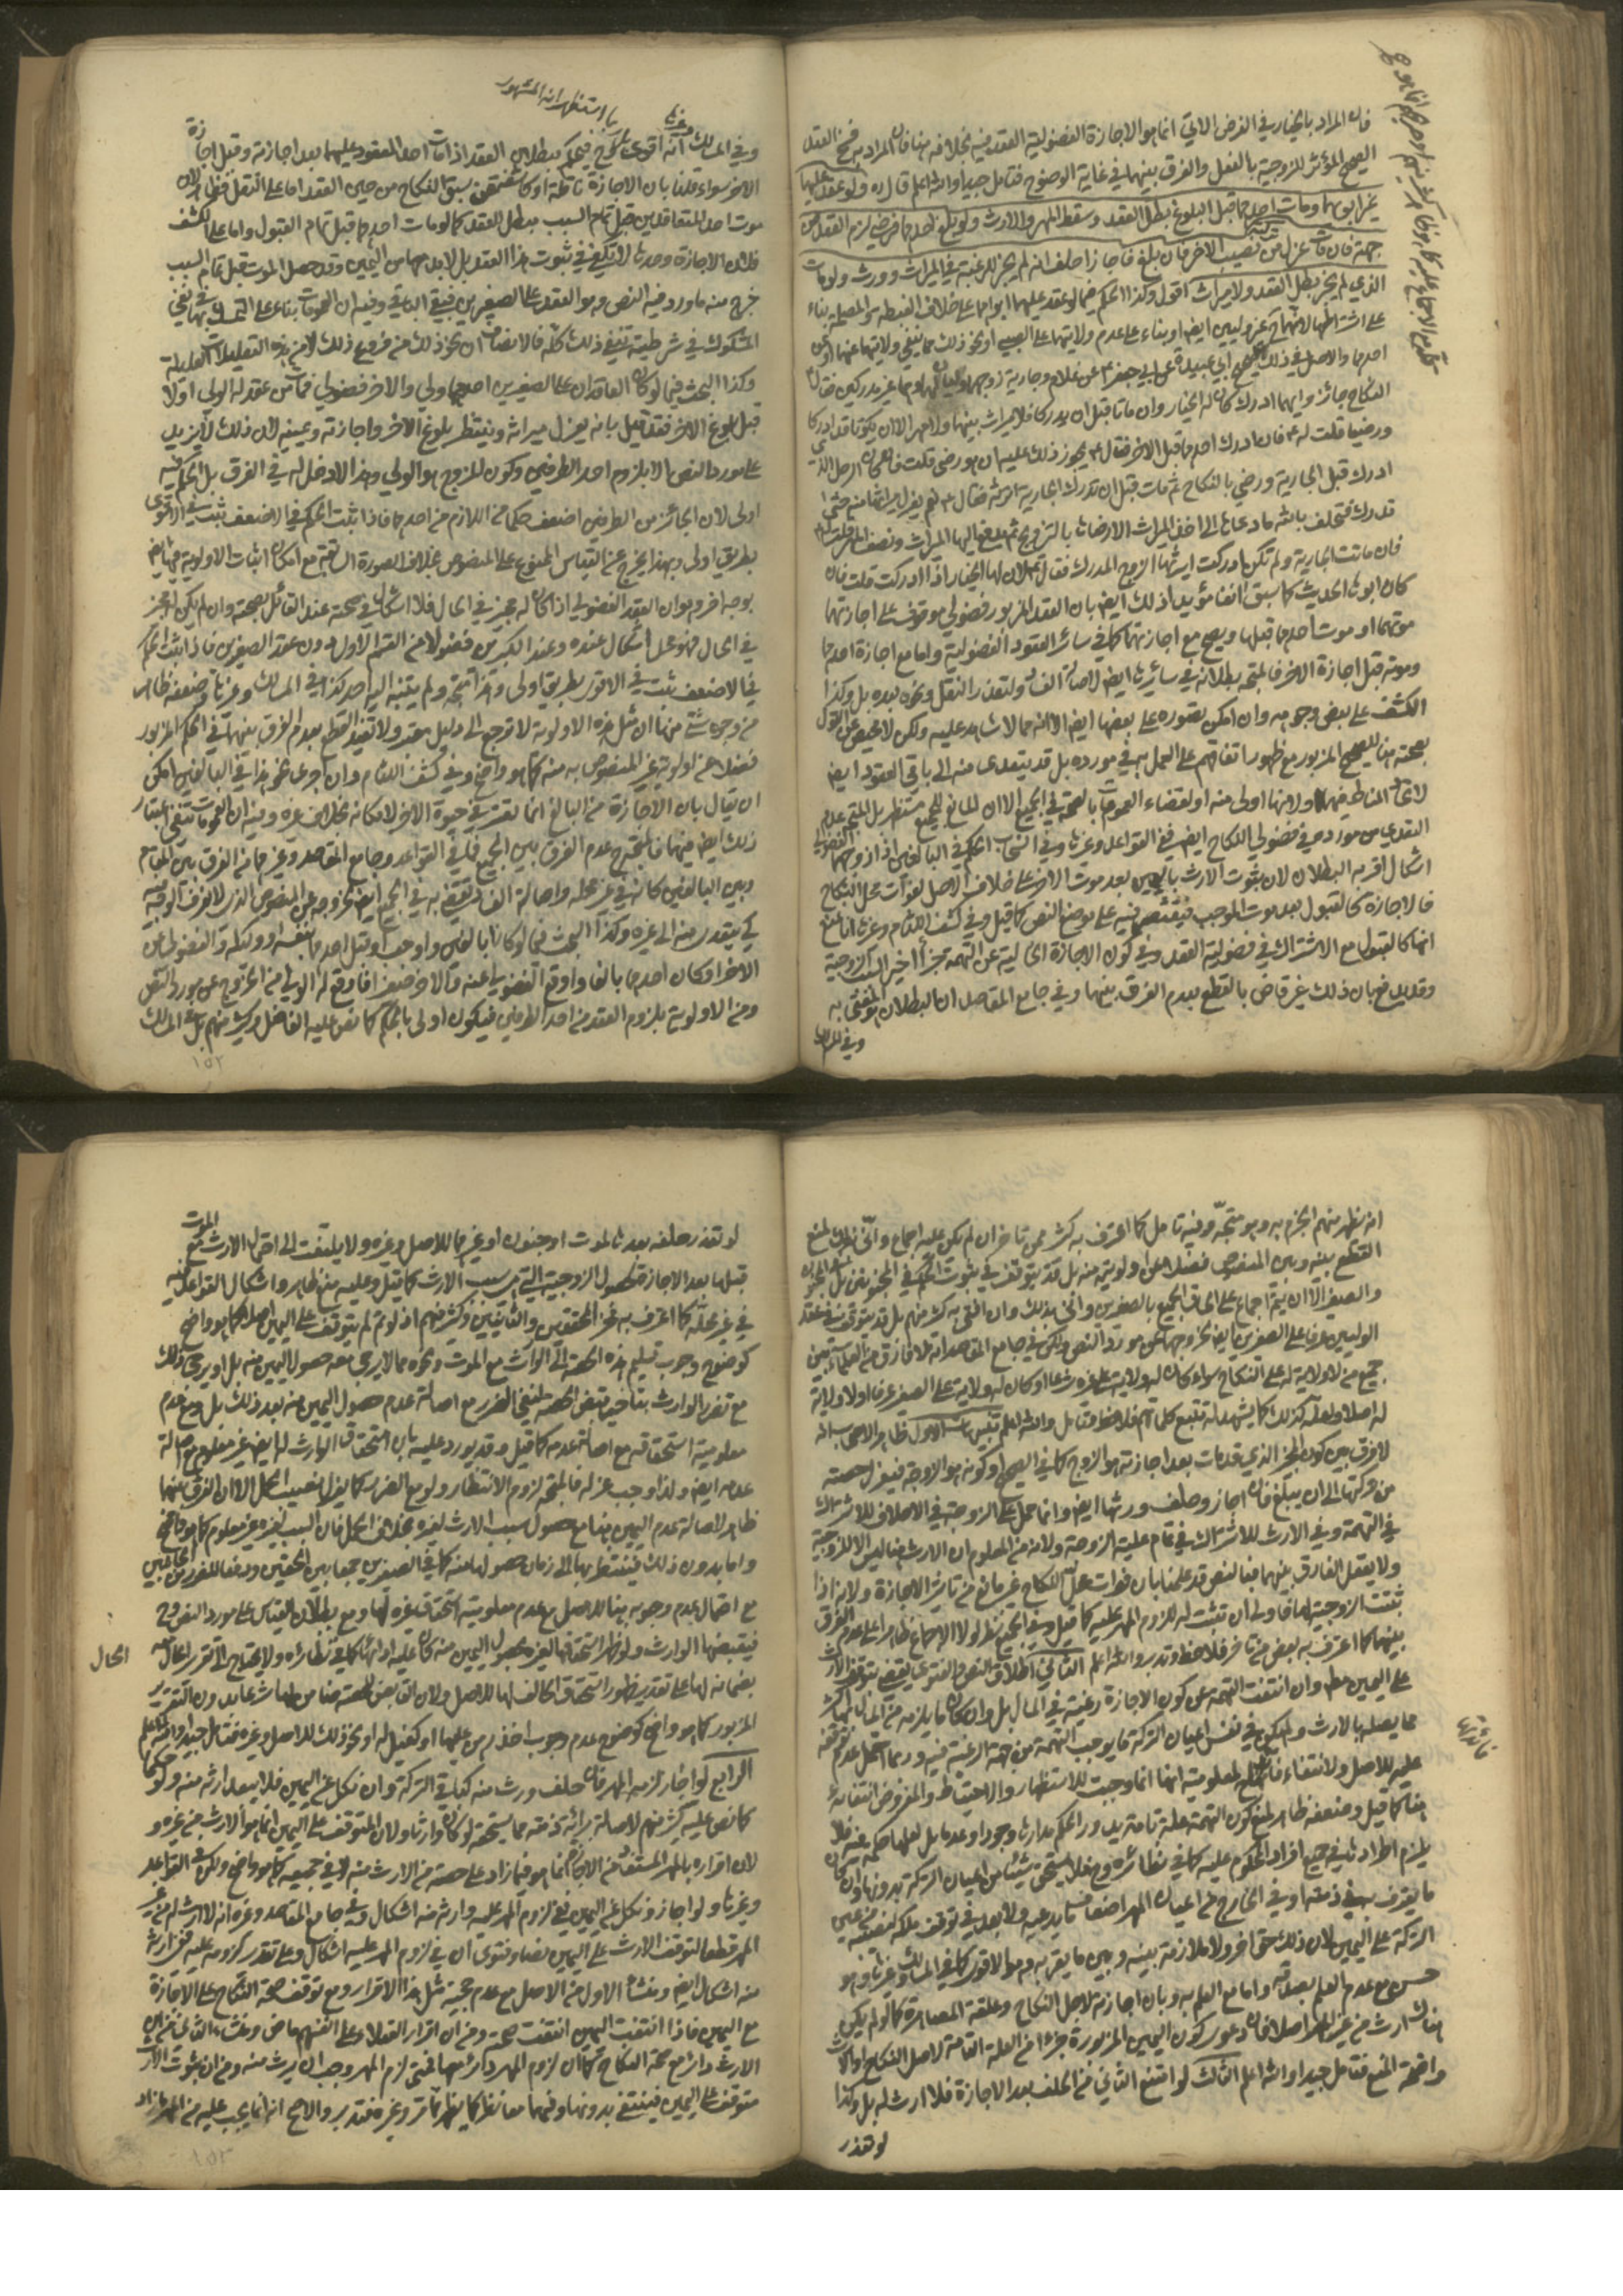 فان المراد بالخيار في الفرض الاتي انما هو الاجازة الفضولية العقد فيه بخلافه هنا فان المراد به فسخ العقد
الصحيح المؤثر للزوجية بالفعل والفرق بينهما في غاية الوضوح فتامل جيدا والله اعلم قال ره ولو عقد عليهما
غير ابويهما ومات احدهما قبل البلوغ بطل العقد وسقط المهر والارث ولو بلغ احدهما فرضي لزم العقد من
جهته فان مات عزل من تركته نصيب الاخر فان بلغ فاجاز احلف انه لم يجز للرغبة في الميراث وورث ولو مات
الذي لم يجز بطل العقد ولا ميراث اقول وكذا الحكم فيما لو عقد عليهما ابواهما على خلاف الغبطة والمصلحة بناء
على اشتراطهما لانهما ح غير وليين ايضا او بناء على عدم ولايتهما على الصبي او نحو ذلك مما ينفي ولايتهما عنهما او عن
احدهما والاصل في ذلك صحيح ابي عبيدة عن ابي جعفر ع عن غلام وجارية زوجهما وليان لهما وهما غير مدركين فقال
النكاح جائز وايهما ادرك كان له الخيار وان ماتا قبل ان يدركا فلا ميراث بينهما ولا مهر الا ان يكونا قد ادركا
ورضيا قلت له فان ادرك احدهما قبل الاخر فقال ع يجوز ذلك عليه ان هو رضي قلت فان كان الرجل الذي
ادرك قبل الجارية ورضي بالنكاح ثم مات قبل ان تدرك الجارية اترثه فقال ع نعم يعزل ميراثها منه حتى
تدرك فتحلف بالله ما دعاها الى اخذ الميراث الا رضاها بالتزويج ثم يدفع اليها الميراث ونصف المهر قلت
فان ماتت الجارية ولم تكن ادركت ايرثها الزوج المدرك فقال ع لا لان لها الخيار اذا ادركت قلت فان
كان ابوها الحديث كما سبق انفا مؤيدا ذلك ايضا بان العقد المزبور فضولي موقوف على اجازتهما
موتهما او موت احدهما قبلها ويصح مع اجازتهما كما في سائر العقود الفضولية واما مع اجازة احدهما
وموته قبل اجازة الاخر فالمتجه بطلانه في سائرها ايضا لاصالة الفساد ولتعذر النقل ونحوه بعده بل وكذا
الكشف على بعض وجوهه وان امكن تصوره على بعضها ايضا الا انه مما لا شاهد عليه ولكن لا محيص عن القول
بصحته هنا للصحيح المزبور مع ظهور اتفاقهم على العمل به في مورده بل قد يتعدى منه الى باقي العقود ايضا
لاتحاد المناط فيهما او لانها اولى منه او لقضاء العمومات بالصحة في الجميع الا ان المانع للجميع مستظهر بل المتجه عدم
التعدي من مورده في فضولي النكاح ايضا ففي القواعد وغيرها وفي انسحاب الحكم في البالغين اذا زوجهما الفضولي
اشكال اقربه البطلان لان ثبوت الارث باليمين بعد موت الاخر على خلاف الاصل لفوات محل النكاح
فالاجازة كالقبول بعد موت الموجب فيقتصر فيه على موضع النص كما قيل وفي كشف اللثام وغيره انا نمنع
انها كالقبول مع الاشتراك في فضولية العقد وفي كون الاجازة الخالية عن التهمة جزءا اخير السبب الزوجية
وقد يدفع بان ذلك غير قاض بالقطع بعدم الفرق بينهما وفي جامع المقاصد ان البطلان هو المفتى به
وفي المسالك
وفي المسالك وغيرها انه اقوى ح فيحكم ببطلان العقد اذا مات احد المعقود عليهما بعد اجازته وقبل اجازة
يا استظهر انه المشهور
الاخر سواء قلنا بان الاجازة ناقلة او كاشفة عن سبق النكاح من حين العقد اما على النقل فظاهر لان
موت احد المتعاقدين قبل تمام السبب مبطل للعقد كما لو مات احدهما قبل تمام القبول واما على الكشف
فلان الاجازة وحدها لا تكفي في ثبوت هذا العقد بل لابد معها من اليمين وقد حصل الموت قبل تمام السبب
خرج منه ما ورد فيه النص وهو العقد على الصغيرين فيبقى الباقي وفيه ان العمومات بناء على التمسك بها في نفي
المشكوك في شرطيته تنفي ذلك كله فالانصاف ان نحو ذلك من فروع ذلك لا من هذه التعليلات العليلة
وكذا البحث فيما لو كان العاقدان على الصغيرين احدهما ولي والاخر فضولي فمات من عقد له الولي اولا
قبل بلوغ الاخر فقد قيل بانه يعزل ميراثه وينتظر بلوغ الاخر واجازته ويمينه لان ذلك لا يزيد
على مورد النص الا بلزوم احد الطرفين وكون المزوج هو الولي وهذا لا دخل له في الفرق بل الحكم فيه
اولى لان الجائز من الطرفين اضعف حكما من اللازم من احدهما فاذا ثبت الحكم في الاضعف ثبت في الاقوى
بطريق اولى وبهذا يخرج عن القياس الممنوع على المنصوص بخلاف الصورة السابقة مع امكان اثبات الاولوية فيها ايضا
بوجه اخر وهو ان العقد الفضولي اذا كان له مجيز في الحال فلا اشكال في صحته عند القائل بصحته وان لم يكن له مجيز
في الحال فهو محل اشكال عنده وعقد الكبيرين فضولا من القسم الاول دون عقد الصغيرين فاذا ثبت الحكم
في الاضعف ثبت في الاقوى بطريق اولى وهذا متجه ولم يتنبه اليه احد كذا في المسالك وغيرها وضعفه ظاهر
من وجوه شتى منها ان مثل هذه الاولوية لا ترجع الى دليل معتد ولا تفيد القطع بعدم الفرق بينهما في الحكم المزبور
فضلا عن اولوية غير المنصوص به منه كما هو واضح وفي كشف اللثام وان اجرى نحو هذا في البالغين امكن
ان يقال بان الاجازة من البالغ انما تعتبر في حيوة الاخر لامكانه بخلاف غيره وفيه ان العمومات تنفي اعتبار
ذلك ايضا فيهما فالمتجه ح عدم الفرق بين الجميع كما في القواعد وجامع المقاصد وغيرهما من الفرق بين المقام
وبين البالغين كانه في غير محله واصالة الفساد تقتضي به في الجميع ايضا لخروجه عن المنصوص الذي لا نعرف الوجه فيه
كي يتعدى منه الى غيره وكذا البحث فيما لو كانا بالغين واوجب او قبل احدهما بنفسه او وكيله والفضولي من
الاخر او كان احدهما بالغا واوقع الفضولي عنه والاخر صغيرا فاوقع له الولي من الخروج عن مورد النص
ومن الاولوية بلزوم العقد من احد الطرفين فيكون اولى بالحكم كما نص عليه الفاضل وكثير منهم بل في المسالك
انه يظهر منهم الجزم به وهو متجه وفيه تامل كما اعترف به كثير ممن تاخر ان لم يكن عليه اجماع وانى لمنع
القطع بينه وبين المنصوص فضلا عن اولويته منه بل قد يتوقف في ثبوت الحكم في المجنونين بل المجنون
والصغير الا ان يتم اجماع على الحاق الجميع بالصغيرين وانى بذلك وان افتى به كثير منهم بل قد يتوقف في عقد
الوليين عرفا على الصغيرين ايضا لخروجهما عن مورد النص ولكن في جامع المقاصد انه لا فارق من العلماء بين
جميع من لا ولاية له على النكاح سواء كان له ولاية على غيره شرعا او كان له ولاية على الصغير عرفا او لا ولاية
له اصلا ولعله كذلك كما يشهد له تتبع كلماتهم فلاحظ وتامل والله اعلم تنبيهات الاول ظاهر الاصحاب انه
لا فرق بين كون المجيز الذي قد مات بعد اجازته هو الزوج كما في الصحيح او كونه هو الزوجة فيعزل حصته
من تركتها الى ان يبلغ فان اجاز وحلف ورثها ايضا وانما حمل على الزوجة في الاحلاف للاشتراك
في التهمة وفي الارث للاشتراك في تمام علية الزوجة ولانه من المعلوم ان الارث هنا ليس الا للزوجية
ولا يعقل الفارق بينهما فبالنص قد علمنا بان فوات محل النكاح غير مانع من تاثير الاجازة ولانه اذا
ثبتت الزوجية لها فاولى ان تثبت له للزوم المهر عليه كما قيل وفي الجميع نظر لولا الاجماع ظاهرا على عدم الفرق
بينهما كما اعترف به بعض من تاخر فلاحظ وتدبر والله اعلم الثاني اطلاق النص والفتوى يقضي بتوقف الارث
على اليمين مط وان انتفت التهمة عن كون الاجازة رغبة في المال بل وان كان ما يلزمه من المال اكثر
فائدتها
مما يصله بالارث ولم يكن في نفس اعيان التركة ما يوجب التهمة من جهة الرغبة فيه وربما احتمل عدم توقفه
عليه للاصل ولانتفاء فائدتها لمعلومية انها انما وجبت للاستظهار والاحتياط والمفروض انتفائه
هنا كما قيل وضعفه ظاهر لمنع كون التهمة علة تامة يدور الحكم مدارها وجودا وعدما بل لعلها حكمة فيه فلا
يلزم اطرادها في جميع افراد المحكوم عليه كما في نظائره وح فلا يستحق شيئا من اعيان التركة بدونها وان كان
ما يعترف به في ذمته او في الخارج من اعيان المهر اضعاف ما يدعيه ولا بعد في توقف ملكه لنصيبه من عين
التركة على اليمين لان ذلك حق اخر ولا ملازمة بينه وبين ما يقر به وهو الاقوى كما في المسالك وغيرها وهو
حسن مع عدم العلم بصدقه واما مع العلم به وبان اجازته لاجل النكاح وعلقة المصاهرة كما لو لم يكن
هناك ارث من غير المهر اصلا فان دعوى كون اليمين المزبورة جزءا من العلة التامة لاصل النكاح او الارث
واضحة المنع فتامل جيدا والله اعلم الثالث لو امتنع الثاني من الحلف بعد الاجازة فلا ارث له بل وكذا
لو تعذر
لو تعذر حلفه بعدها لموت او جنون او غيرهما للاصل وغيره ولا يلتفت الى احتمال الارث مع الموت
قبلها بعد الاجازة لحصول الزوجية التي هي سبب الارث كما قيل وعليه منع ظاهر واشكال القواعد فيه
في غير محله كما اعترف به فخر المحققين والثانيين وكثير منهم اذ لو تم لم يتوقف على اليمين اصلا كما هو واضح
كوضوح وجوب تسليم هذه الحصة الى الوارث مع الموت ونحوه مما لا يرجى معه حصول اليمين منه بل او يرجى ذلك
مع تضرر الوارث بتاخير قبض الحصة لنفي الضرر مع اصالة عدم حصول اليمين منه بعد ذلك بل ومع عدم
معلومية استحقاقه مع اصالة عدمه كما قيل وقد يورد عليه بان استحقاق الوارث لها ايضا غير معلوم مع اصالة
عدمه ايضا ولذا وجب عزله فالمتجه لزوم الانتظار ولو مع الضرر كما يعزل نصيب الحمل الا ان الفرق بينهما
ظاهر لاصالة عدم اليمين هنا مع حصول سبب الارث لغيره بخلاف الحمل فان السبب لغيره غير معلوم كما هو واضح
واما بدون ذلك فينتظر بها الى زمان حصولها منه كما في الصغيرين جمعا بين الحقين ودفعا للضرر من الجانبين
مع احتمال عدم وجوبه هنا للاصل مع عدم معلومية استحقاق غيره لها ومع بطلان القياس على مورد النص وح
فيقبضها الوارث ولو ظهر استحقاقها لغيره بحصول اليمين منه كان عليه ادائها كما في نظائره ولا يحتاج الى تقرير الحال
الحال
بضمانه لها على تقدير ظهور استحقاق الحالف لها للاصل ولان القابض للحصة ضامن لها شرعا بدون التقرير
المزبور كما هو واضح كوضوح عدم وجوب اخذ رهن عليها او كفيل له او نحو ذلك للاصل وغيره فتامل جيدا والله اعلم
الرابع لو اجاز لزمه المهر فان حلف ورث منه كباقي التركة وان نكل عن اليمين فلا يبعد ارثه منه ولو حكما
كما نص عليه كثير منهم لاصالة برائة ذمته مما يستحقه لو كان وارثا ولان المتوقف على اليمين انما هو الارث من غيره و
لان اقراره بالمهر المستفاد من الاجازة انما هو فيما زاد على حصته من الارث منه لا في جميعه كما هو واضح ولكن في القواعد
وغيرها ولو اجاز ونكل عن اليمين ففي لزوم المهر عليه وارثه منه اشكال وفي جامع المقاصد وغيره انه لا ارث له من غير
المهر قطعا لتوقف الارث على اليمين نصا وفتوى ان في لزوم المهر عليه اشكال وعلى تقدير لزومه عليه ففي ارثه
منه اشكال ايضا ومنشأ الاول من الاصل مع عدم حجية مثل هذا الاقرار ومع توقف صحة النكاح على الاجازة
مع اليمين فاذا انتفت اليمين انتفت صحته ومن ان اقرار العقلاء على انفسهم ماض ومنشأ الثاني من ان
الارث دائر مع صحة النكاح كما ان لزوم المهر دائر معها فمتى لزم المهر وجب ان يرث منه ومن ان ثبوت الارث
متوقف على اليمين فينتفي بدونها وفيهما معا نظر كما يظهر مما مر وغيره فتدبر والاصح انه انما يجب عليه من المهر ما زاد